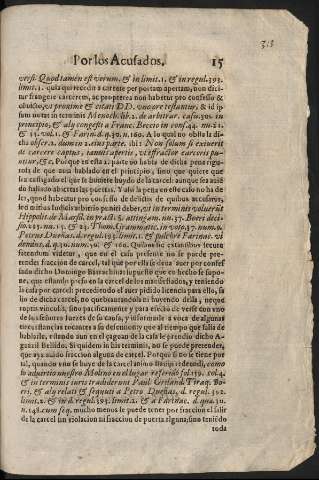 313
Por los Acusados. 15
versi. Quod tamen est verum. & in limit. 1. & in regul. 393.
limit. 1. quia qui recedit à carcere per portam apertam, non dici-
tur frangere carcerem, ac propterea non habetur pro confesso &
& citati DD. testantur, & id ip-
sum notat in terminis Menoch. lib. 2. de arbitrar. casu. 301. in
principio, & alij congesti à Franc. Becçio in cons. 44. nu. 21.
& 23. vol. 1. & Farin. d. q. 30. n. 160. A lo qual no obsta la di-
cha obser. 2. dum in 2. eius parte. ibi: Non solum si exiuerit
de carcere captus, ianuis apertis, vt effractor carceris pu-
nitur, &c. Porque en esta 2. parte no habla de dicha pena rigu-
rosa de que aun hablado en el principio, sino que quiere que
sea castigado el que se huuiere huydo de la carcel: aunque sea auiē-
do hallado abiertas las puertas. Y assi la pena en este caso no ha de
ser, quod habeatur pro confesso de delictis de quibus accusatus,
sed mitius iudicis arbitrio puniri debet, vt in terminis voluerūt
Hippolit. de Marsil. in pract. §. attingam. nu. 37. Boeri deci-
sio. 215. nu. 15. & 23. Thom. Grammatic. in voto. 37. num. 9.
Petrus Dueñas. d. regul. 193. limit. 1. & pulchrè Farinac. vi-
dendus, d. q. 30. num. 30. & 160. Quibus sic extantibus secure
fatendum videtur, que en el caso presente no se puede pre-
tender fraccion de carcel, tal que por ella se deua auer por confes-
sado dicho Domingo Barrachina: supuesto que en hecho se supo-
ne, que estando preso en la carcel de los manifestados, y teniendo
la casa por carcel: precediendo el auer pidido licencia para ello, sa-
lio de dicha carcel, no quebrantandola ni huyendo della, neque
ruptis vinculis, sino pacificamente y para efecto de verse con vno
de los señores Iuezes de su causa, y informarle à voca de algunas
circunstancias tocantes a su defensa: y que al tiempo que salia de
hablarle, estando aun en el çaguan de la casa le prendio dicho Al-
guazil Bellido. Si quidem in his terminis, no se puede pretender,
que aya auido fraccion alguna de carcel. Porque si no se tiene por
tal, quando vno se huye de la carcel animo statim redeundi, como
lo aduirtio nuestro Molino en el lugar referido fol. 159. col. 4.
& in terminis iuris tradiderunt Paul. Gerland. Tiraq. Bo-
eri, & alij relati & sequuti a Petro Dueñas, d. regul. 392.
limit. 2. & in d. regul. 393. limit. 2. & à Farinac. d. qu. 30.
n. 148. cum seq. mucho menos se puede tener por fraccion el salir
de la carcel sin violacion ni fraccion de puerta alguna; sino teniendo
toda